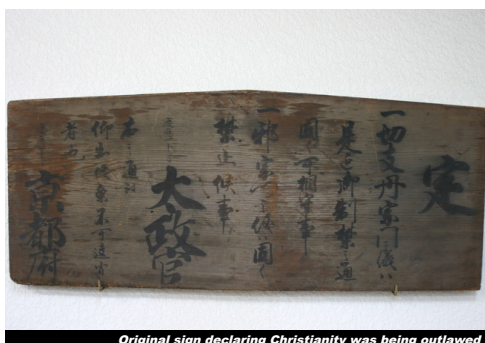 定
一切支丹宗門之儀ハ
是迄御制禁之通
固ク可相守事
一邪宗門之儀ハ固ク
禁止候事
太政官
右之通被
仰出候条不可違背
者也
京都府
Original sign declaring Christianity was being outlawed